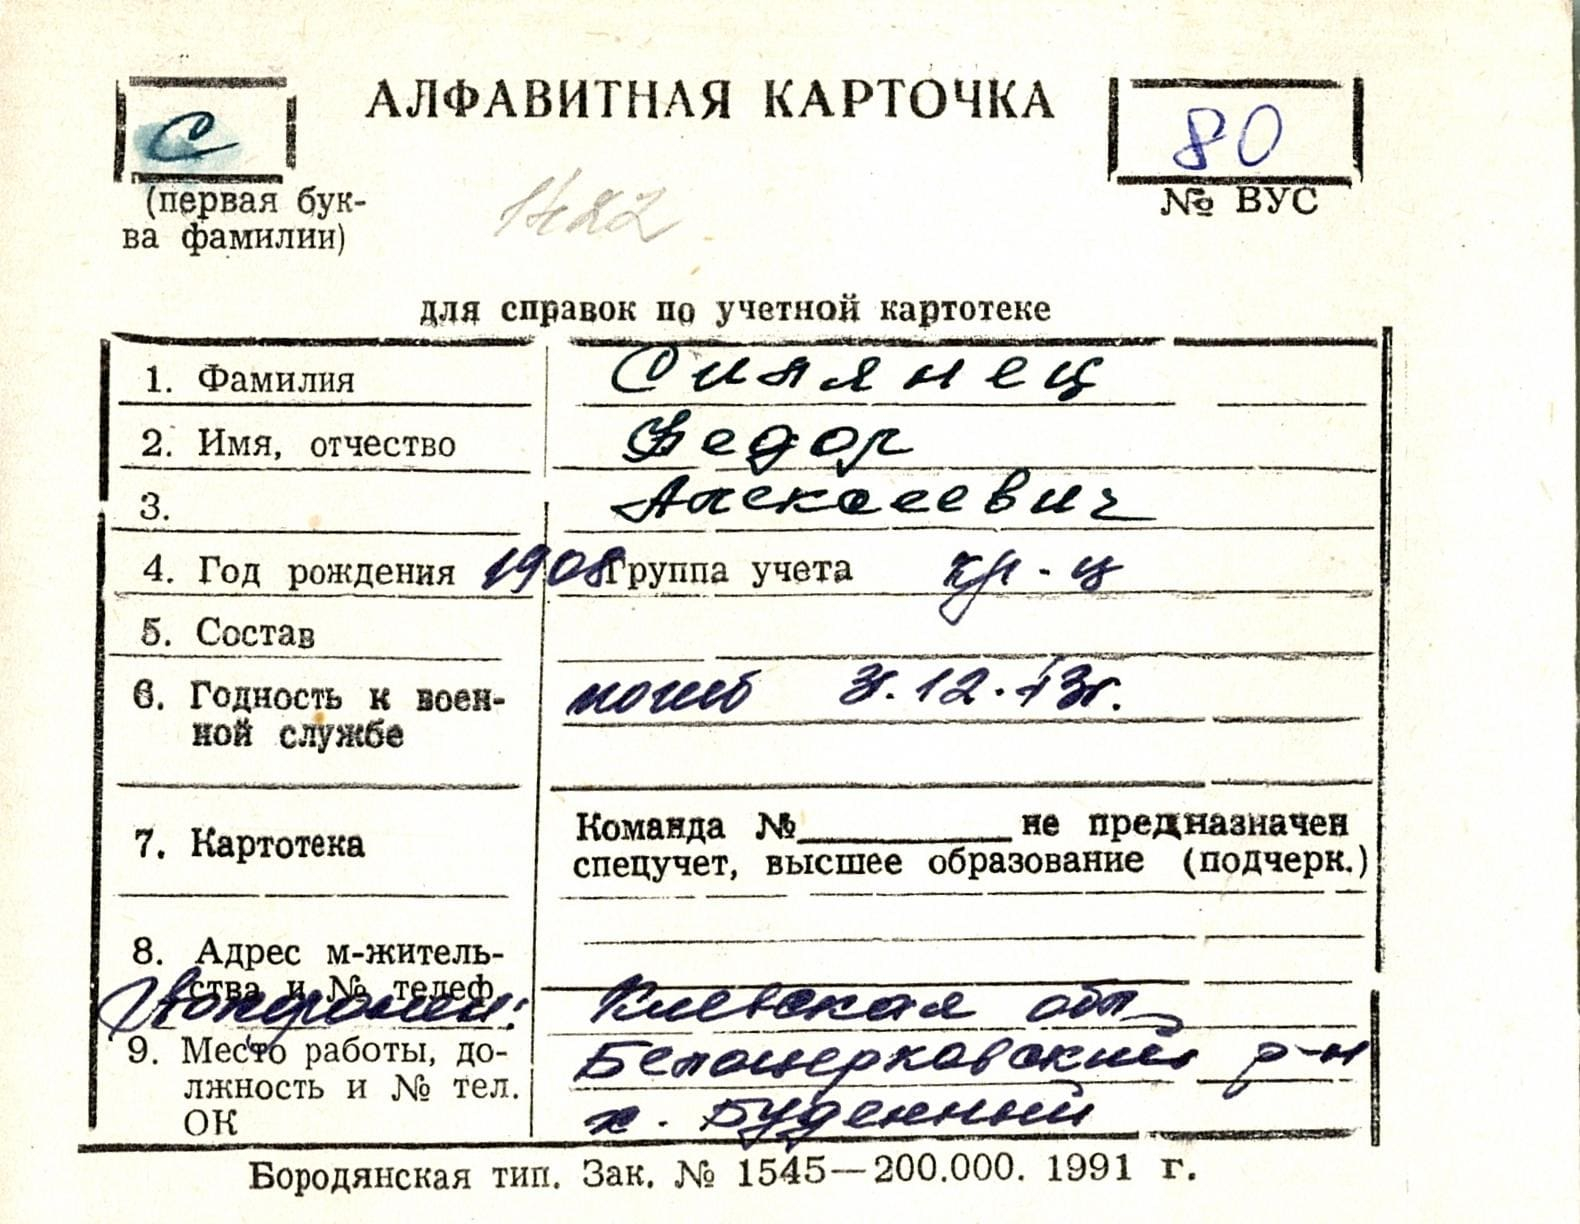 АЛФАВИТНАЯ КАРТОЧКА
С
80
(первая бук-
ва фамилии)
№ ВУС
для справок по учетной картотеке
1. Фамилия Силянец
2. Имя, отчество Федор
3. Алексеевич
4. Год рождения 1908 Группа учета кр-ц
5. Состав
6. Годность к воен-
ной службе
погиб 31.12.43г.
7. Картотека
Команда №__________не предназначен
спецучет, высшее образование (подчерк.)
8. Адрес м-житель-
ства и № телеф.
Похоронен: Киевская обл
9. Место работы, до-
лжность и № тел.
ОК
Белоцерковский р-н
х. Буденный
Бородянская тип. Зак. № 1545—200.000. 1991 г.